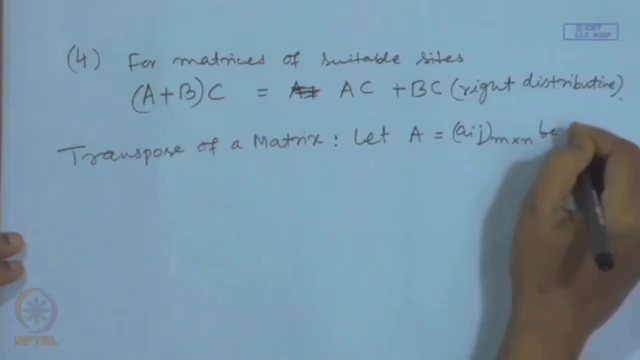 © CET
I.I.T. KGP
(4) For matrices of suitable sites
(A+B)C = AC + BC (right distributive).
Transpose of a Matrix : Let A = (aij)m×n be
NPTEL